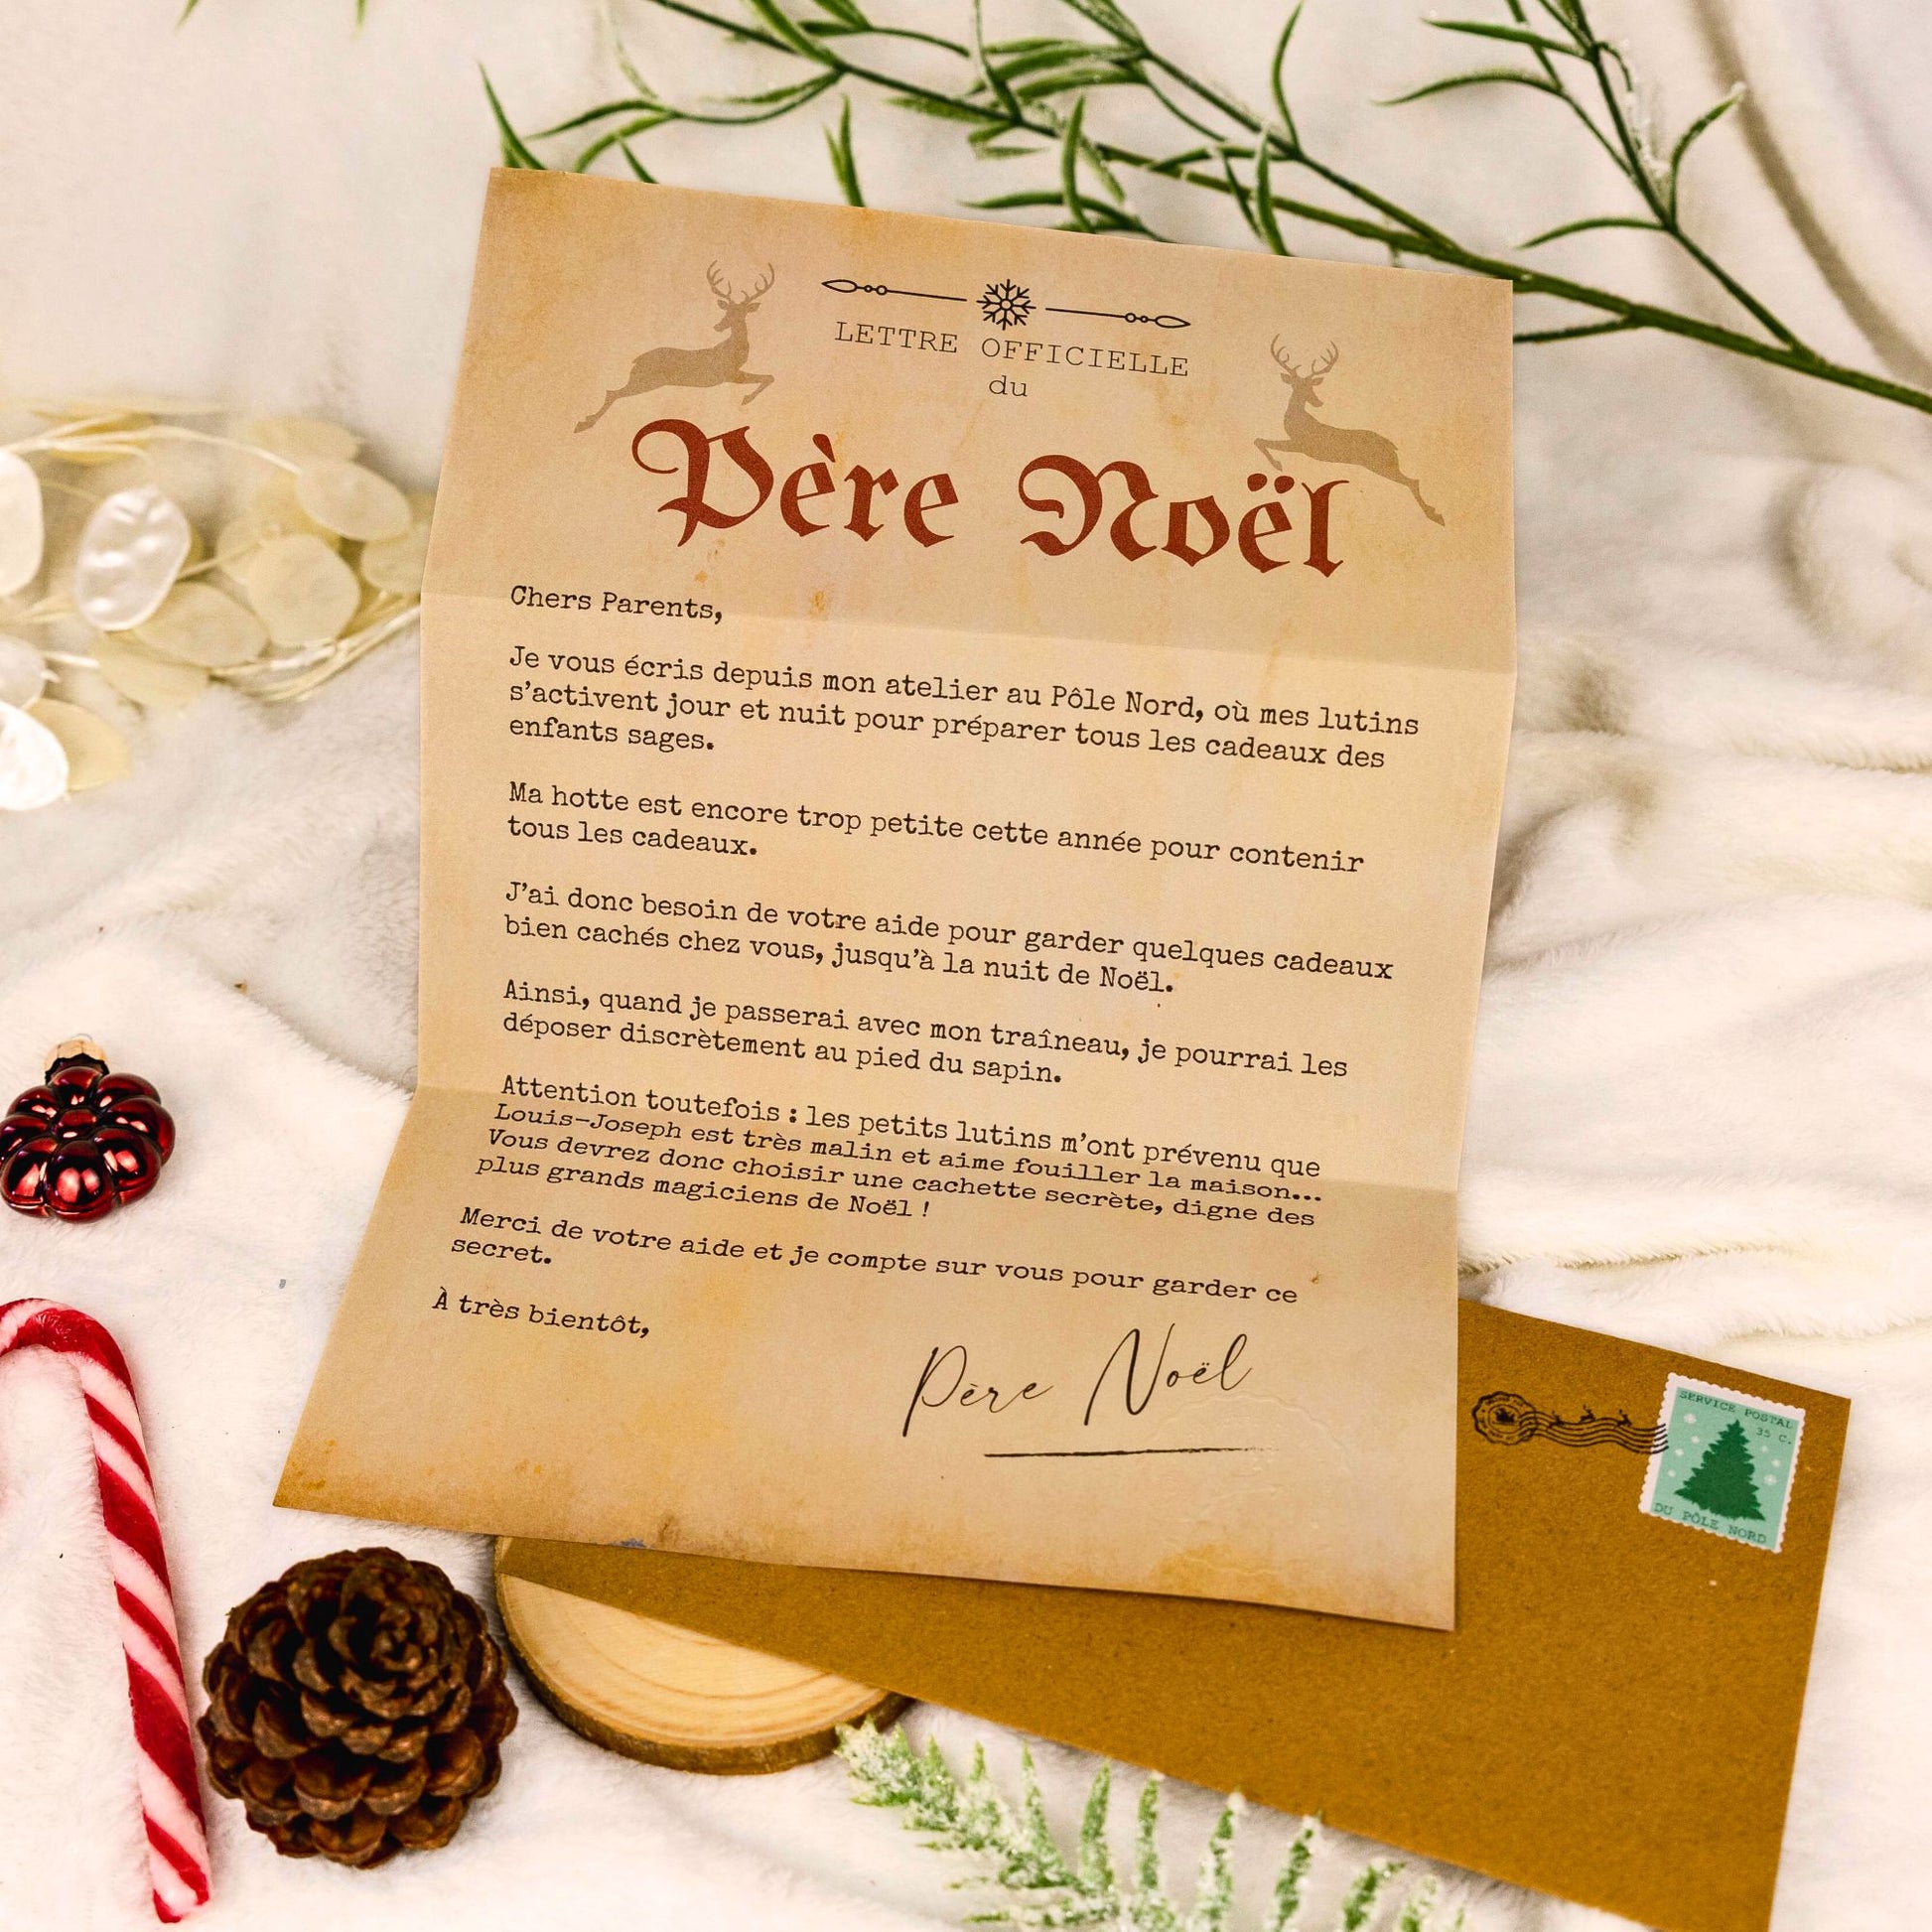 LETTRE OFFICIELLE
du
Père Noël
Chers Parents,
Je vous écris depuis mon atelier au Pôle Nord, où mes lutins
s’activent jour et nuit pour préparer tous les cadeaux des
enfants sages.
Ma hotte est encore trop petite cette année pour contenir
tous les cadeaux.
J’ai donc besoin de votre aide pour garder quelques cadeaux
bien cachés chez vous, jusqu’à la nuit de Noël.
Ainsi, quand je passerai avec mon traîneau, je pourrai les
déposer discrètement au pied du sapin.
Attention toutefois : les petits lutins m’ont prévenu que
Louis-Joseph est très malin et aime fouiller la maison...
Vous devrez donc choisir une cachette secrète, digne des
plus grands magiciens de Noël !
Merci de votre aide et je compte sur vous pour garder ce
secret.
À très bientôt,
Père Noël
SERVICE POSTAL
35 C.
DU PÔLE NORD